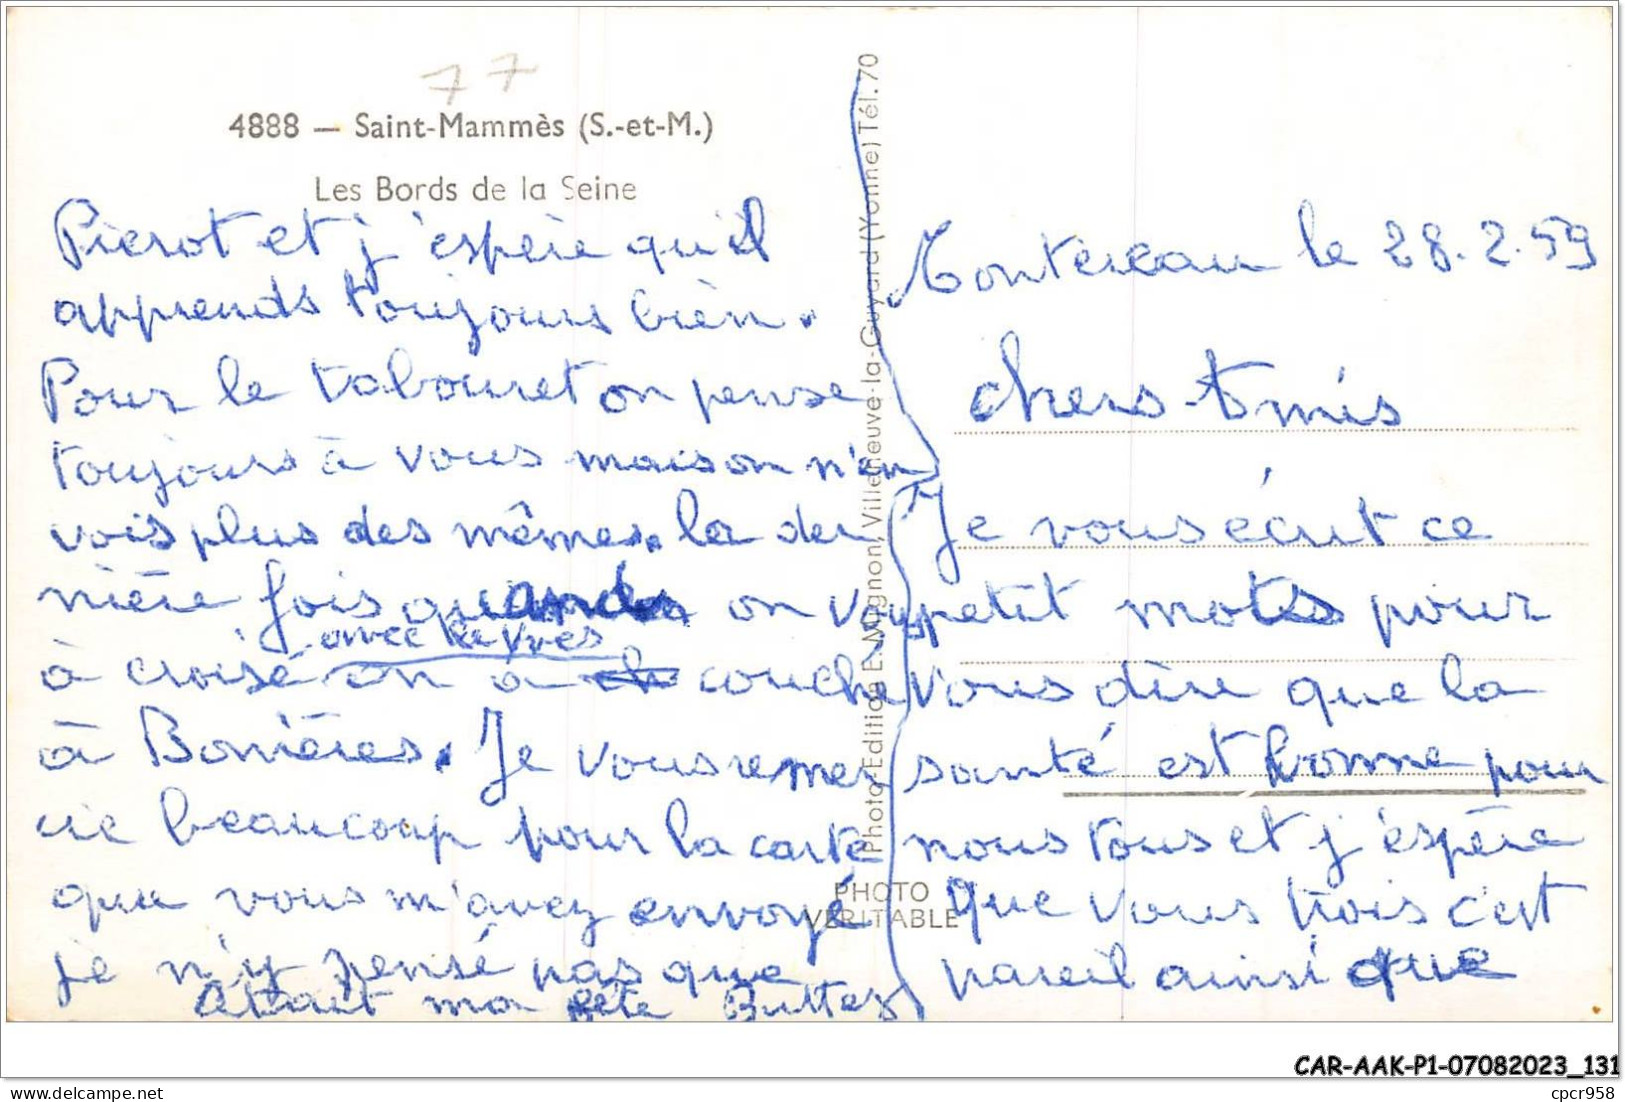 77
4888 — Saint-Mammès (S.-et-M.)
Les Bords de la Seine
Montereau le 28.2.59
chers Amis
Je vous écrit ce
petit mots pour
vous dire que la
santé est bonne pour
nous tous et j'éspère
que vous trois c'est
pareil ainsi que
Pierot et j'éspère qu'il
apprends toujours bien.
Pour le tabouret on pense
toujours à vous maison n'en
vois plus des mêmes. la der
nière fois quand on vous
à croisé avec le on à couché
à Bonières. Je vous remer
cie beaucoup pour la carte
que vous m'avez envoyé
je n'y pensé pas que
cétait ma fête Buttez
Photo-Edition E. Mignon, Villeneuve-la-Guyard (Yonne) Tél. 70
PHOTO
VERITABLE
CAR-AAK-P1-07082023_131
cpcr958